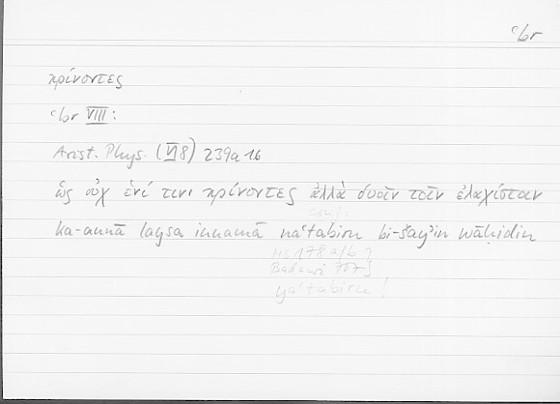 ʿbr
κρίνοντες
ʿbr VIII:
Arist. Phys. (VI 8) 239a16
ὡς οὐχ ἑνί τινι κρίνοντες ἀλλὰ δυοῖν τοῖν ἐλαχίστοιν
ka-annā laysa innamā naʿtabiru bi-šayʾin wāḥidin
conj.
Hs 178 a/b
Badawi 707
yaʿtabiru!